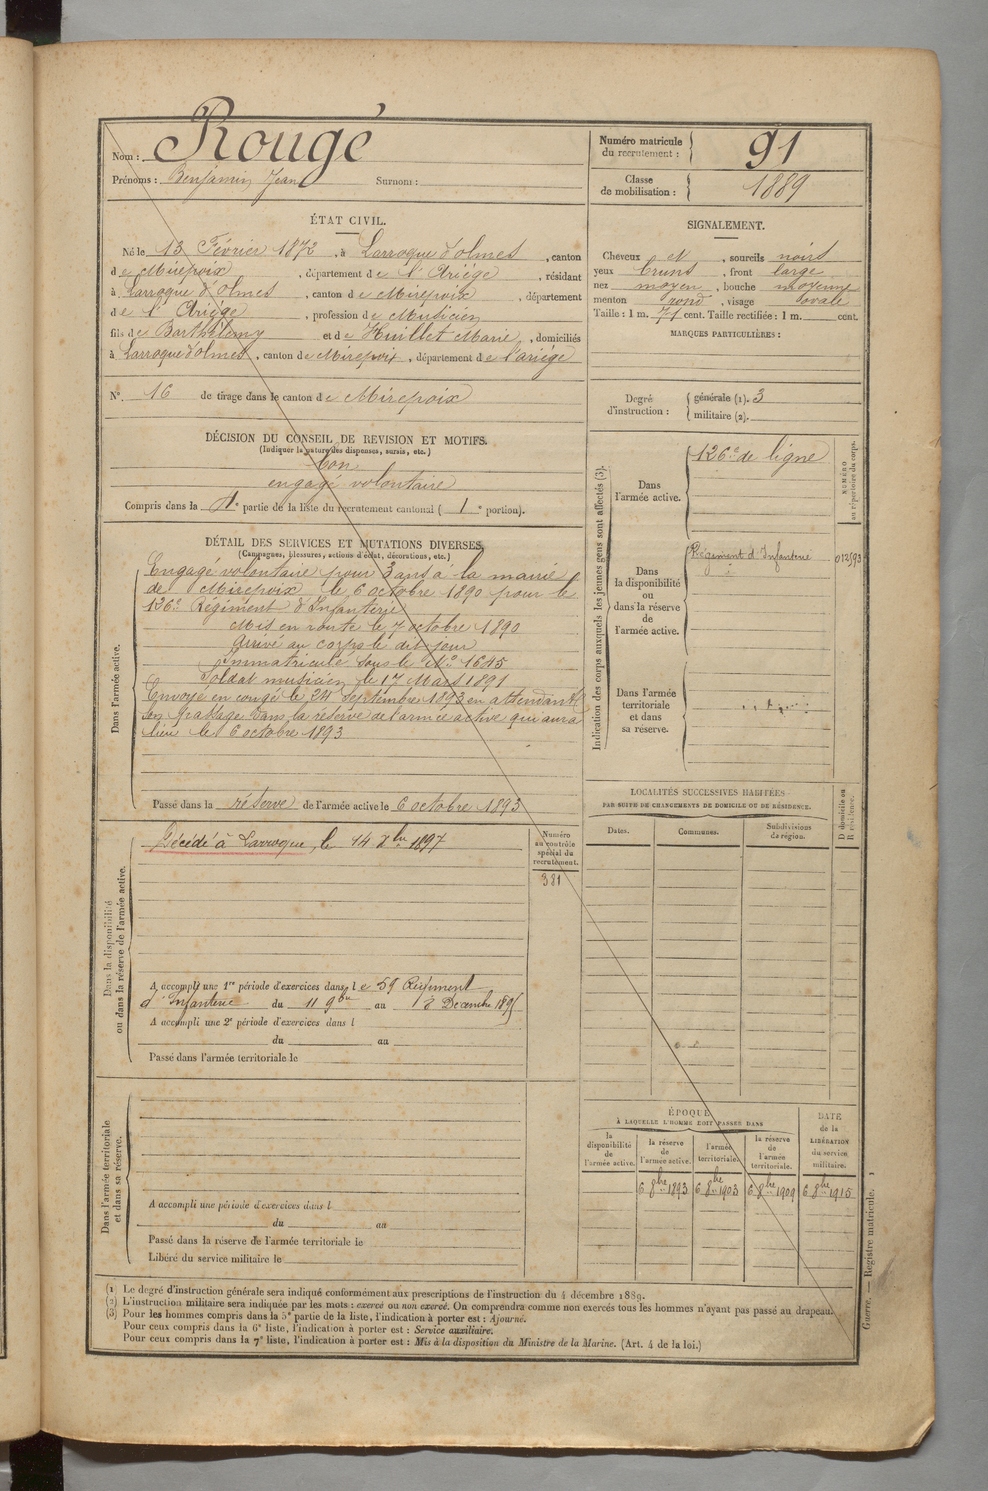 Nom : Rougé
Prénoms : Benjamin Jean Surnom :
Numéro matricule du recrutement : 91
Classe de mobilisation : 1889
ÉTAT CIVIL.
Né le 13 Février 1872, à Larroque d'olmes, canton
de Mirepoix, département de l'Ariége, résidant
à Larroque d'Olmes, canton de Mirepoix, département
de l'Ariége, profession de Musicien
fils de Barthélemy et de Huillet Marie, domiciliés
à Larroque d'olmes, canton de Mirepoix, département de l'ariége
SIGNALEMENT.
Cheveux et, sourcils noirs
yeux bruns, front large
nez moyen, bouche moyenne
menton rond, visage ovale
Taille : 1 m. 71 cent. Taille rectifiée : 1 m. cent.
MARQUES PARTICULIÈRES :
N°. 16 de tirage dans le canton de Mirepoix
Degré d'instruction : générale (1). 3
militaire (2).
DÉCISION DU CONSEIL DE REVISION ET MOTIFS.
(Indiquer la nature des dispenses, sursis, etc.)
bon
engagé volontaire
Compris dans la 4e partie de la liste du recrutement cantonal (1e portion).
DÉTAIL DES SERVICES ET MUTATIONS DIVERSES.
(Campagnes, blessures, actions d'éclat, décorations, etc.)
Dans l'armée active.
Engagé volontaire pour 3 ans à la mairie
de Mirepoix le 6 octobre 1890 pour le
126e Régiment d'Infanterie
Mis en route le 7 octobre 1890
Arrivé au corps le dit jour
Immatriculé sous le No 1645
Soldat musicien le 17 Mars 1891
Envoyé en congé le 24 septembre 1893 en attendant
son passage dans la réserve de l'armée active qui aura
lieu le 6 octobre 1893
Passé dans la réserve de l'armée active le 6 octobre 1893
Indication des corps auxquels les jeunes gens sont affectés (3).
NUMÉRO au répertoire du corps.
Dans l'armée active.
126e de ligne
Dans la disponibilité ou dans la réserve de l'armée active.
Régiment d'Infanterie
012593
Dans l'armée territoriale et dans sa réserve.
LOCALITÉS SUCCESSIVES HABITÉES
PAR SUITE DE CHANGEMENTS DE DOMICILE OU DE RÉSIDENCE.
Dates.
Communes.
Subdivisions de région.
D domicile ou R résidence.
Dans la disponibilité ou dans la réserve de l'armée active.
Décédé à Larroque, le 14 Xbre 1897
Numéro au contrôle spécial du recrutement.
381
A accompli une 1re période d'exercices dans le 59 Régiment
d'Infanterie du 11 9bre au 8 Decembre 1895
A accompli une 2e période d'exercices dans l
du au
Passé dans l'armée territoriale le
Dans l'armée territoriale et dans sa réserve.
A accompli une période d'exercices dans l
du au
Passé dans la réserve de l'armée territoriale le
Libéré du service militaire le
ÉPOQUE
À LAQUELLE L'HOMME DOIT PASSER DANS
la disponibilité de l'armée active.
la réserve de l'armée active.
l'armée territoriale.
la réserve de l'armée territoriale.
DATE de la LIBÉRATION du service militaire.
6 8bre 1893 6 8bre 1903 6 8bre 1909 6 8bre 1915
(1) Le degré d'instruction générale sera indiqué conformément aux prescriptions de l'instruction du 4 décembre 1889.
(2) L'instruction militaire sera indiquée par les mots : exercé ou non exercé. On comprendra comme non exercés tous les hommes n'ayant pas passé au drapeau.
(3) Pour les hommes compris dans la 5e partie de la liste, l'indication à porter est : Ajourné.
Pour ceux compris dans la 6e liste, l'indication à porter est : Service auxiliaire.
Pour ceux compris dans la 7e liste, l'indication à porter est : Mis à la disposition du Ministre de la Marine. (Art. 4 de la loi.)
Guerre. — Registre matricule. 1